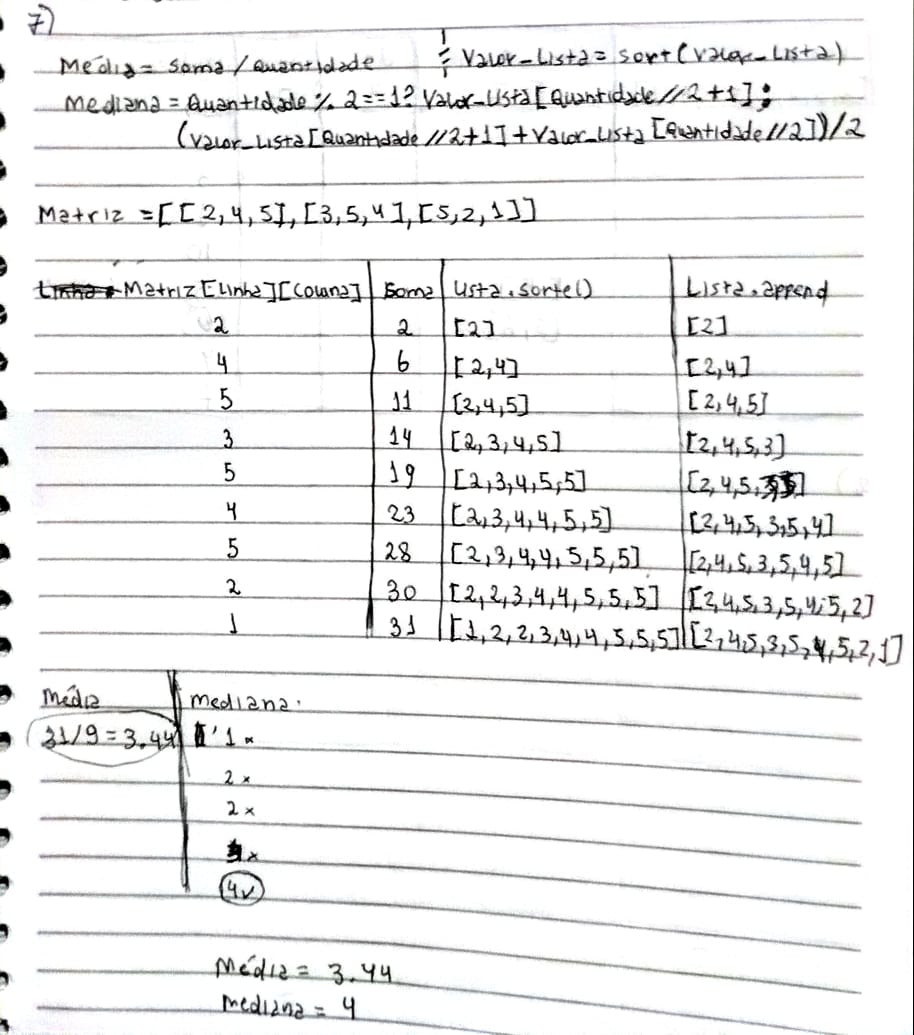 7)
Média = soma / Quantidade ; Valor_Lista = sort(Valor_Lista)
Mediana = Quantidade % 2 == 1? Valor_Lista[Quantidade // 2 + 1] :
(Valor_Lista[Quantidade // 2+1] + Valor_Lista[Quantidade // 2])/2
Matriz = [[2,4,5], [3,5,4], [5,2,1]]
Matriz[Linha][Coluna] Soma Lista.sorte() Lista.append
2 2 [2] [2]
4 6 [2,4] [2,4]
5 11 [2,4,5] [2,4,5]
3 14 [2,3,4,5] [2,4,5,3]
5 19 [2,3,4,5,5] [2,4,5,3,5]
4 23 [2,3,4,4,5,5] [2,4,5,3,5,4]
5 28 [2,3,4,4,5,5,5] [2,4,5,3,5,4,5]
2 30 [2,2,3,4,4,5,5,5] [2,4,5,3,5,4,5,2]
1 31 [1,2,2,3,4,4,5,5,5] [2,4,5,3,5,4,5,2,1]
Média mediana.
31/9 = 3.44 1 x
2 x
2 x
x
4 v
Média = 3.44
mediana = 4